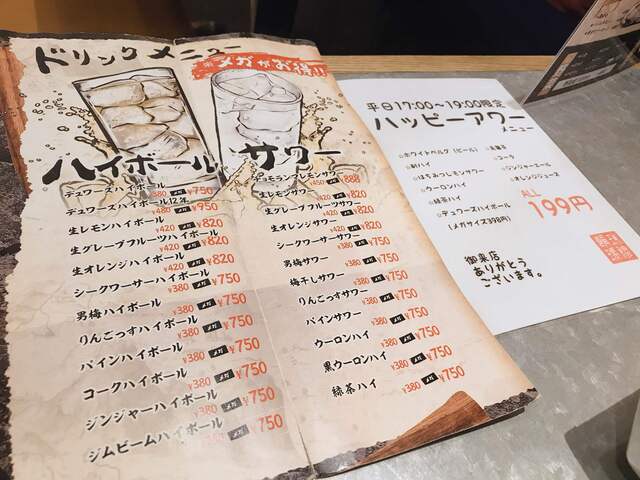 ドリンクメニュー
メガがお得!!
ハイボール
デュワーズハイボール
¥380 メガ ¥750
デュワーズハイボール12年
¥480 メガ ¥950
生レモンハイボール
¥420 メガ ¥820
生グレープフルーツハイボール
¥420 メガ ¥820
生オレンジハイボール
¥420 メガ ¥820
シークワーサーハイボール
¥380 メガ ¥750
男梅ハイボール
¥380 メガ ¥750
りんごっすハイボール
¥380 メガ ¥750
パインハイボール
¥380 メガ ¥750
コークハイボール
¥380 メガ ¥750
ジンジャーハイボール
¥380 メガ ¥750
ジムビームハイボール
¥380 メガ ¥750
サワー
レモンサワー
¥450 メガ ¥888
生レモンサワー
¥420 メガ ¥820
生グレープフルーツサワー
¥420 メガ ¥820
生オレンジサワー
¥420 メガ ¥820
シークワーサーサワー
¥380 メガ ¥750
男梅サワー
¥380 メガ ¥750
梅干しサワー
¥380 メガ ¥750
りんごっすサワー
¥380 メガ ¥750
パインサワー
¥380 メガ ¥750
ウーロンハイ
¥380 メガ ¥750
黒ウーロンハイ
¥380 メガ ¥750
緑茶ハイ
¥380 メガ ¥750
平日17:00〜19:00限定
ハッピーアワー
メニュー
ホワイトベルグ(ビール)
はちみつレモンサワー
ウーロンハイ
緑茶ハイ
デュワーズハイボール
(メガサイズ398円)
コーラ
ジンジャーエール
オレンジジュース
ALL
199円
御来店
ありがとう
ございます。